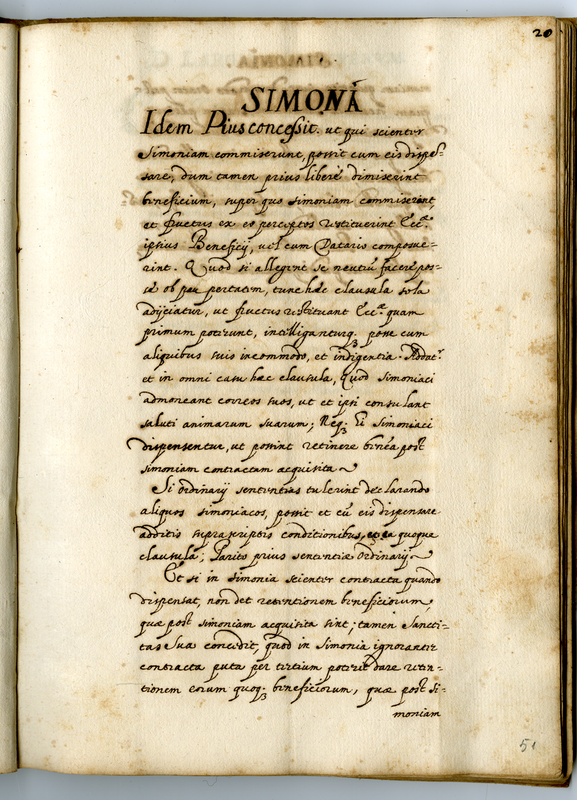 20
SIMONIA
Idem Pius concessit. ut qui scienter
simoniam commiserunt, possit cum eis dispen-
sare, dum tamen prius liberè dimiserint
beneficium, super quo simoniam commiserint,
et fructus ex eo perceptos restituerint Eccˡᵉ
ipsius Beneficij, vel cum Datario composue-
rint. Quod si allegent se neutrū facere pos-
se ob paupertatem, tunc hæc clausula sola
adijciatur, ut fructus restituant Eccˡᵉ quam
primum poterunt, intelliganturq; posse cum
aliquibus suis incommodo, et indigentia.
et in omni casu hæc clausula, Quod simoniaci
admoneant correos suos, ut et ipsi consulant
saluti animarum suarum; Neq; Ei simoniaci
dispensentur, ut possint retinere bñcia post
simoniam contractam acquisita
Si Ordinarij sententias tulerint declarando
aliquos simoniacos, possit et cū eis dispensare
additis suprascriptis conditionibus, et ea quoque
clausula; Parito prius sententiæ Ordinarij
Et si in simonia scienter contracta quando
dispensat, non det retentionem beneficiorum,
quæ post simoniam acquisita sint; tamen Sancti-
tas Sua concedit, quod in simonia ignoranter
contracta puta per tertium poterit dare reten-
tionem eorum quoq; beneficiorum, quæ post si-
moniam
51